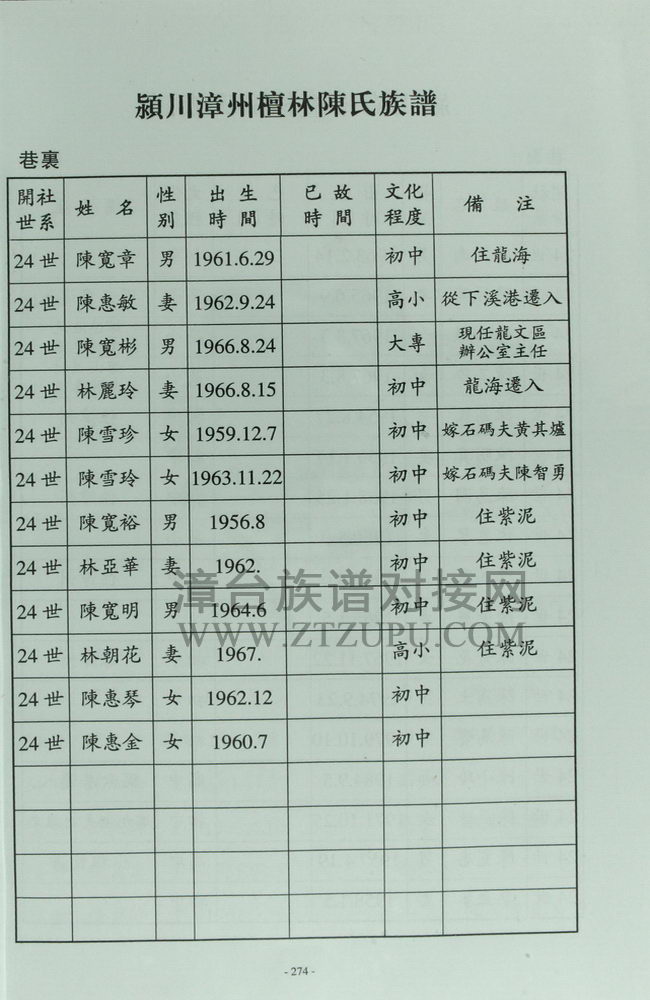 潁川漳州檀林陳氏族譜
巷裏
開社世系 姓名 性別 出生時間 已故時間 文化程度 備註
24世 陳寬章 男 1961.6.29 初中 住龍海
24世 陳惠敏 妻 1962.9.24 高小 從下溪港遷入
24世 陳寬彬 男 1966.8.24 大專 現任龍文區辦公室主任
24世 林麗玲 妻 1966.8.15 初中 龍海遷入
24世 陳雪珍 女 1959.12.7 初中 嫁石碼夫黃其爐
24世 陳雪玲 女 1963.11.22 初中 嫁石碼夫陳智勇
24世 陳寬裕 男 1956.8 初中 住紫泥
24世 林亞華 妻 1962. 初中 住紫泥
24世 陳寬明 男 1964.6 初中 住紫泥
24世 林朝花 妻 1967. 高小 住紫泥
24世 陳惠琴 女 1962.12 初中
24世 陳惠金 女 1960.7 初中
漳台族谱对接网
WWW.ZTZUPU.COM
- 274 -